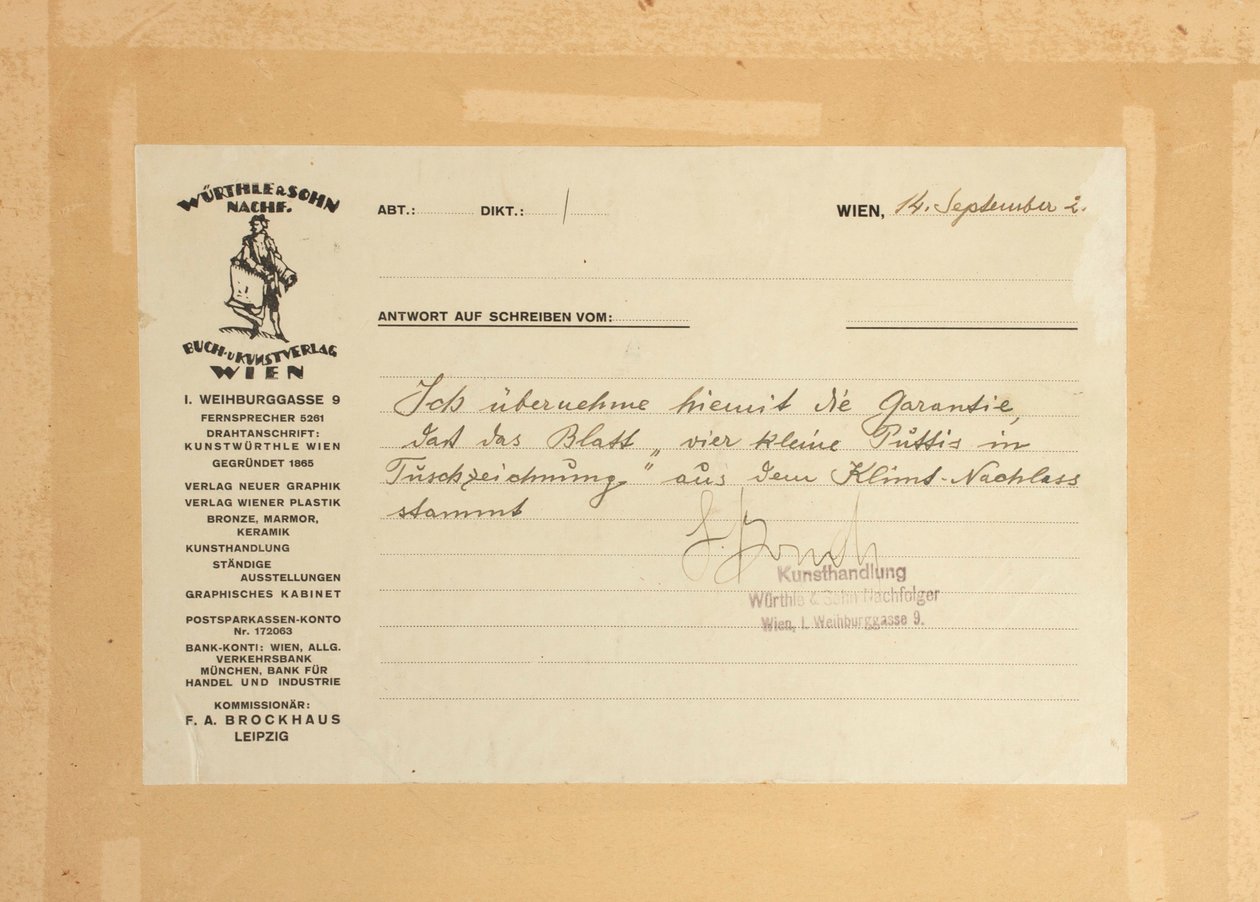 WÜRTHLE & SOHN
NACHF.
BUCH- u KUNSTVERLAG
WIEN
I. WEIHBURGGASSE 9
FERNSPRECHER 5261
DRAHTANSCHRIFT:
KUNSTWÜRTHLE WIEN
GEGRÜNDET 1865
VERLAG NEUER GRAPHIK
VERLAG WIENER PLASTIK
BRONZE, MARMOR,
KERAMIK
KUNSTHANDLUNG
STÄNDIGE
AUSSTELLUNGEN
GRAPHISCHES KABINET
POSTSPARKASSEN-KONTO
Nr. 172063
BANK-KONTI: WIEN, ALLG.
VERKEHRSBANK
MÜNCHEN, BANK FÜR
HANDEL UND INDUSTRIE
KOMMISSIONÄR:
F. A. BROCKHAUS
LEIPZIG
ABT.: DIKT.: WIEN, 14. September 2.
ANTWORT AUF SCHREIBEN VOM:
Ich übernehme hiemit die Garantie,
daß das Blatt „vier kleine Puttis in
Tuschzeichnung" aus dem Klimt-Nachlass
stammt
Kunsthandlung
Würthle & Sohn Nachfolger
Wien, I. Weihburggasse 9.